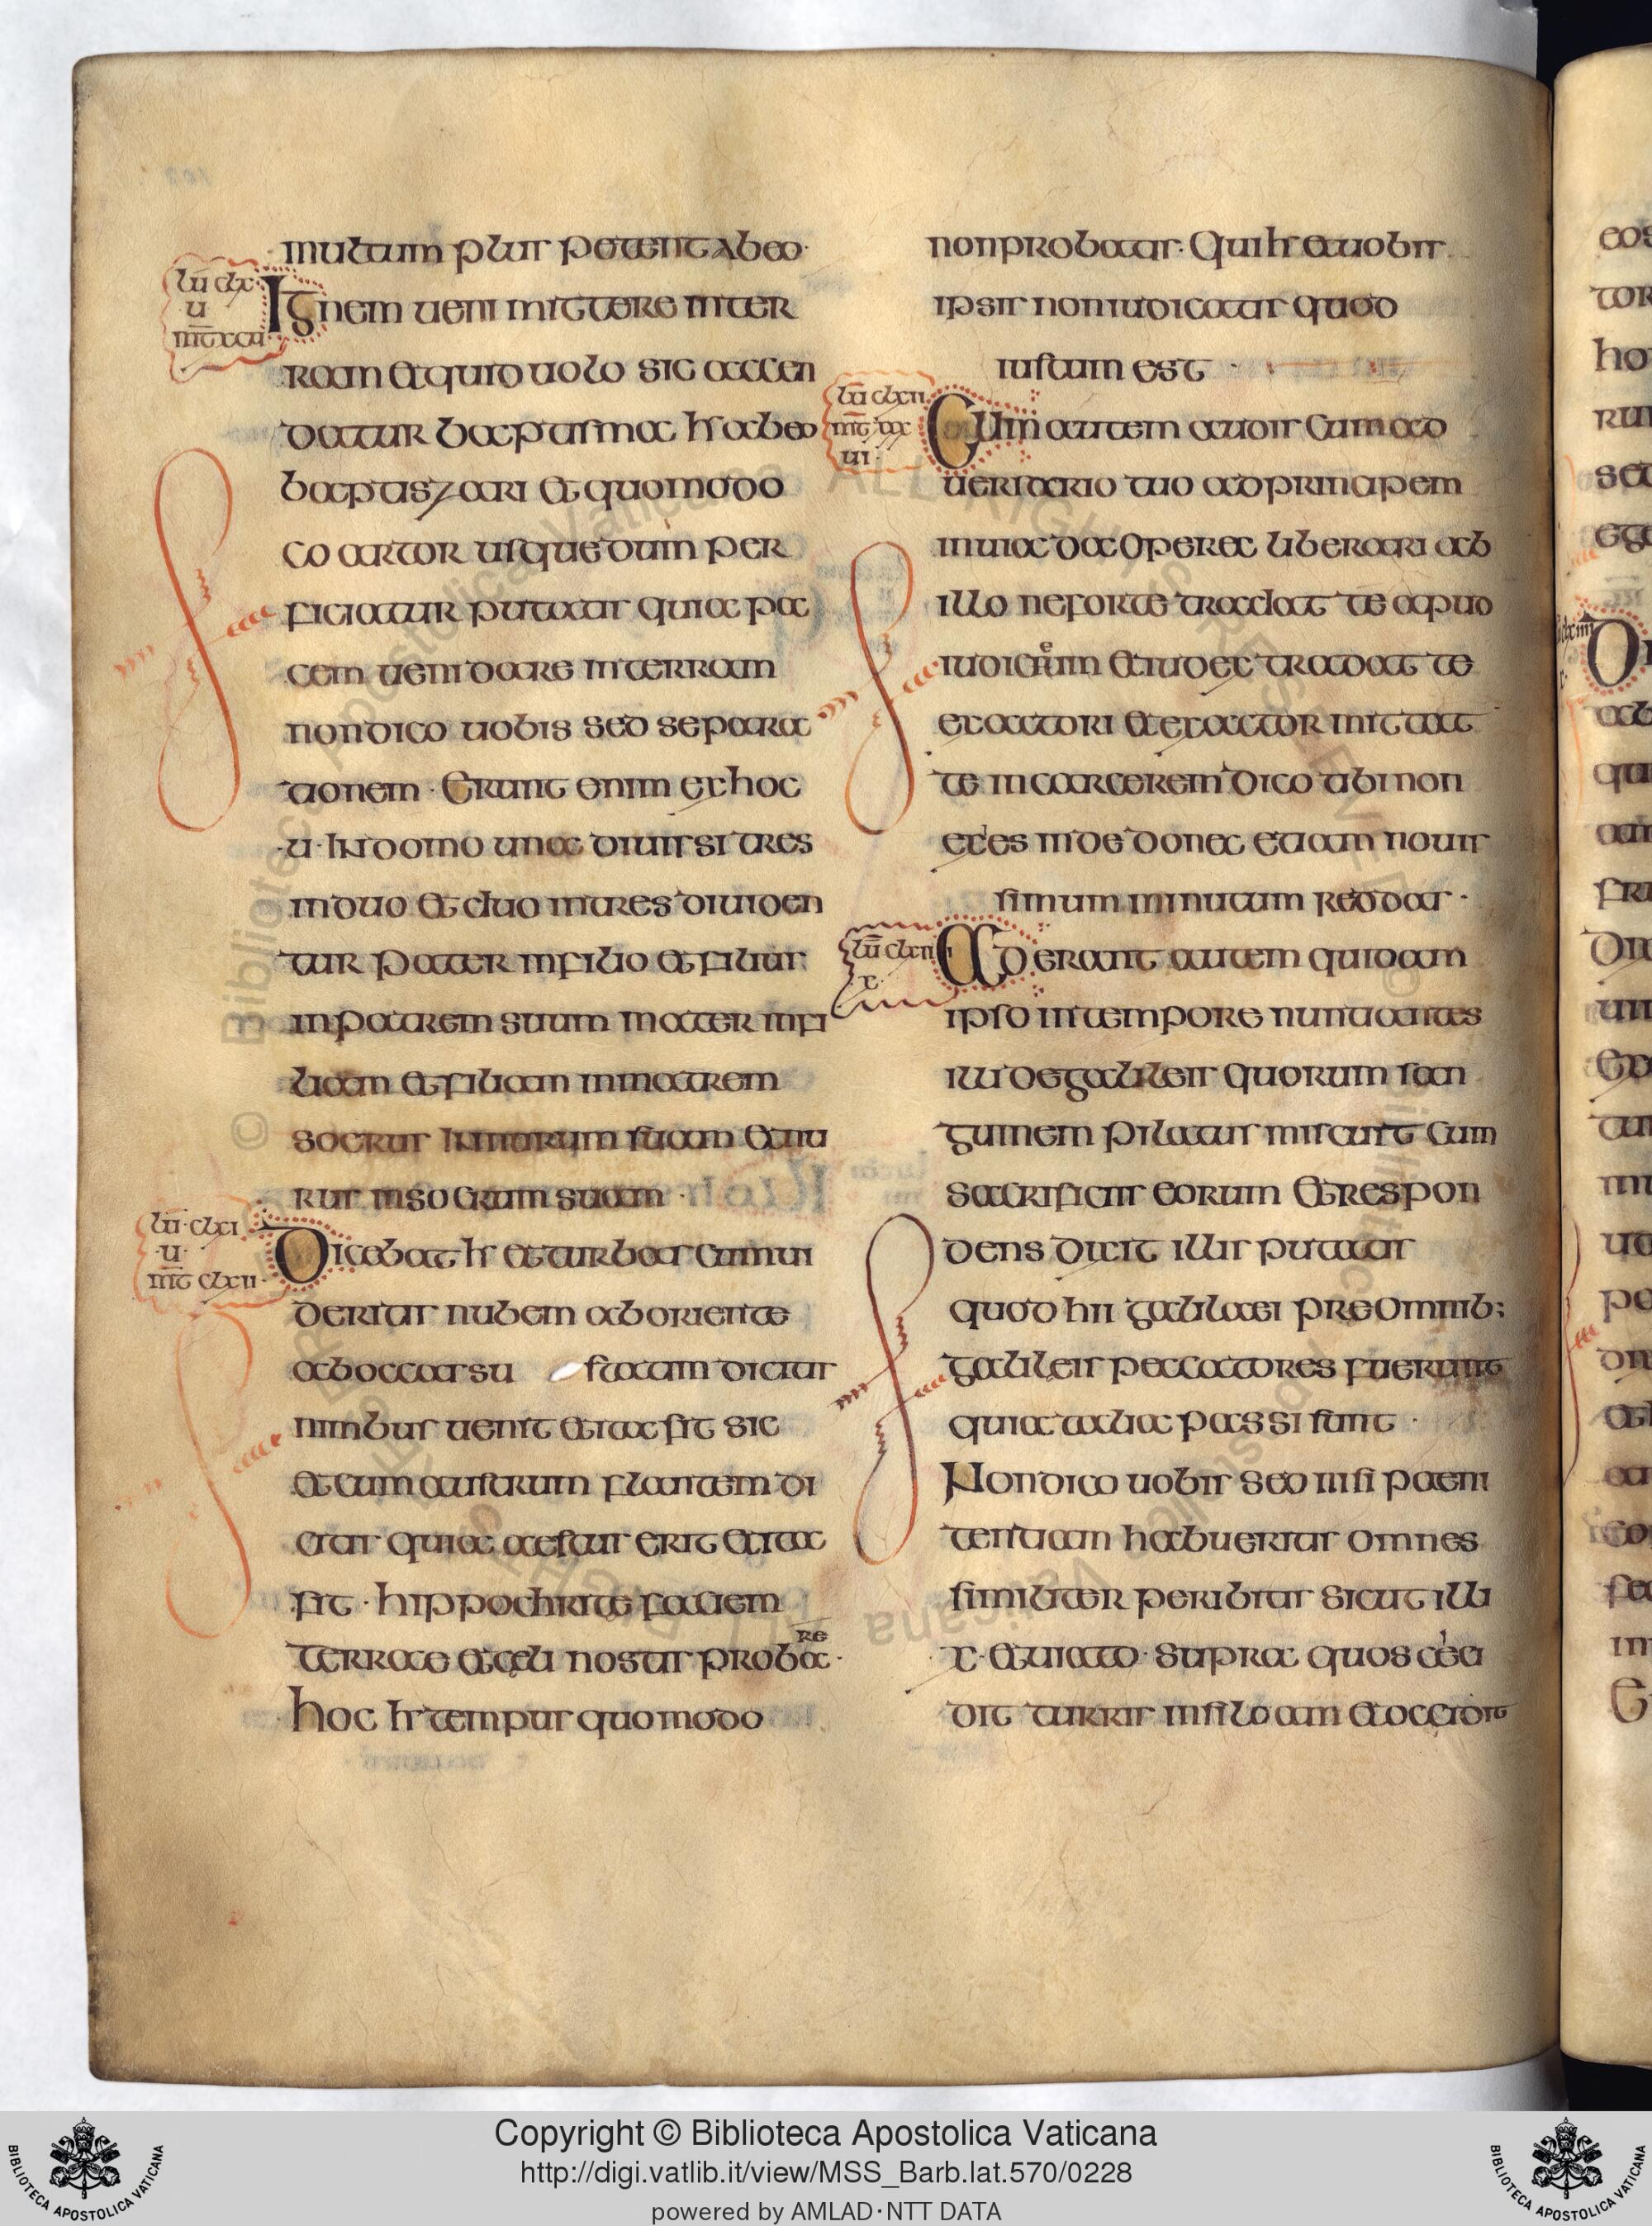 multum plus petent ab eo·
lū clx·
u
mt xcii
Ignem ueni mittere inter
ram et quid uolo sic accen
datur baptisma h̄ abeo
baptiszari et quomodo
co artor usque dum per
ficiatur putatis quia pa
cem ueni dare in terram
non dico uobis sed separa
tionem · Erunt enim ex hoc
·u· In domo una diuisi tres
in duo et duo in tres diuiden
tur pater in filio et filius
in patrem suum mater in fi
liam et filiam in matrem
socrus in nurum suam et nu
rus in socrum suam ·
lū· clxi
·u·
mt clxii·
Dicebat h̄ et turbas cum ui
deritis nubem ab oriente
ab occassu statim dicitis
nimbus uenit et ita fit sic
et cum austrum flantem di
citis quia aestus erit et ita
fit · hippochrite faciem
terrae et celi nostis probare·
hoc h̄ tempus quomodo
non probatis· Qui h̄ et a uobis
ipsis non iudicatis quod
iustum est ·
lū clxii
mt xx
ui·
Cum autem audis cum ad
uersario tuo ad principem
in uia da operec liberari ab
illo ne forte tradat te apud
iudicem et iudex tradat te
exactori et exactor mittat
te in carcerem dico tibi non
exies inde donec etiam nouis
simum minutum reddas ·
lū clxii
x·
Aderant autem quidam
ipso in tempore nuntiantes
illi de galileis quorum san
guinem pilatus miscuit cum
sacrificiis eorum et respon
dens dixit illis putatis
quod hii galilaei pre omnib;
galileis peccatores fuerunt
quia talia passi sunt ·
Non dico uobis sed nisi paeni
tentiam habueritis omnes
similiter peribitis sicut illi
x· et uiato· supra quos ceci
dit turris in siloam et occidit
Copyright © Biblioteca Apostolica Vaticana
http://digi.vatlib.it/view/MSS_Barb.lat.570/0228
powered by AMLAD·NTT DATA
BIBLIOTECA APOSTOLICA VATICANA
BIBLIOTECA APOSTOLICA VATICANA